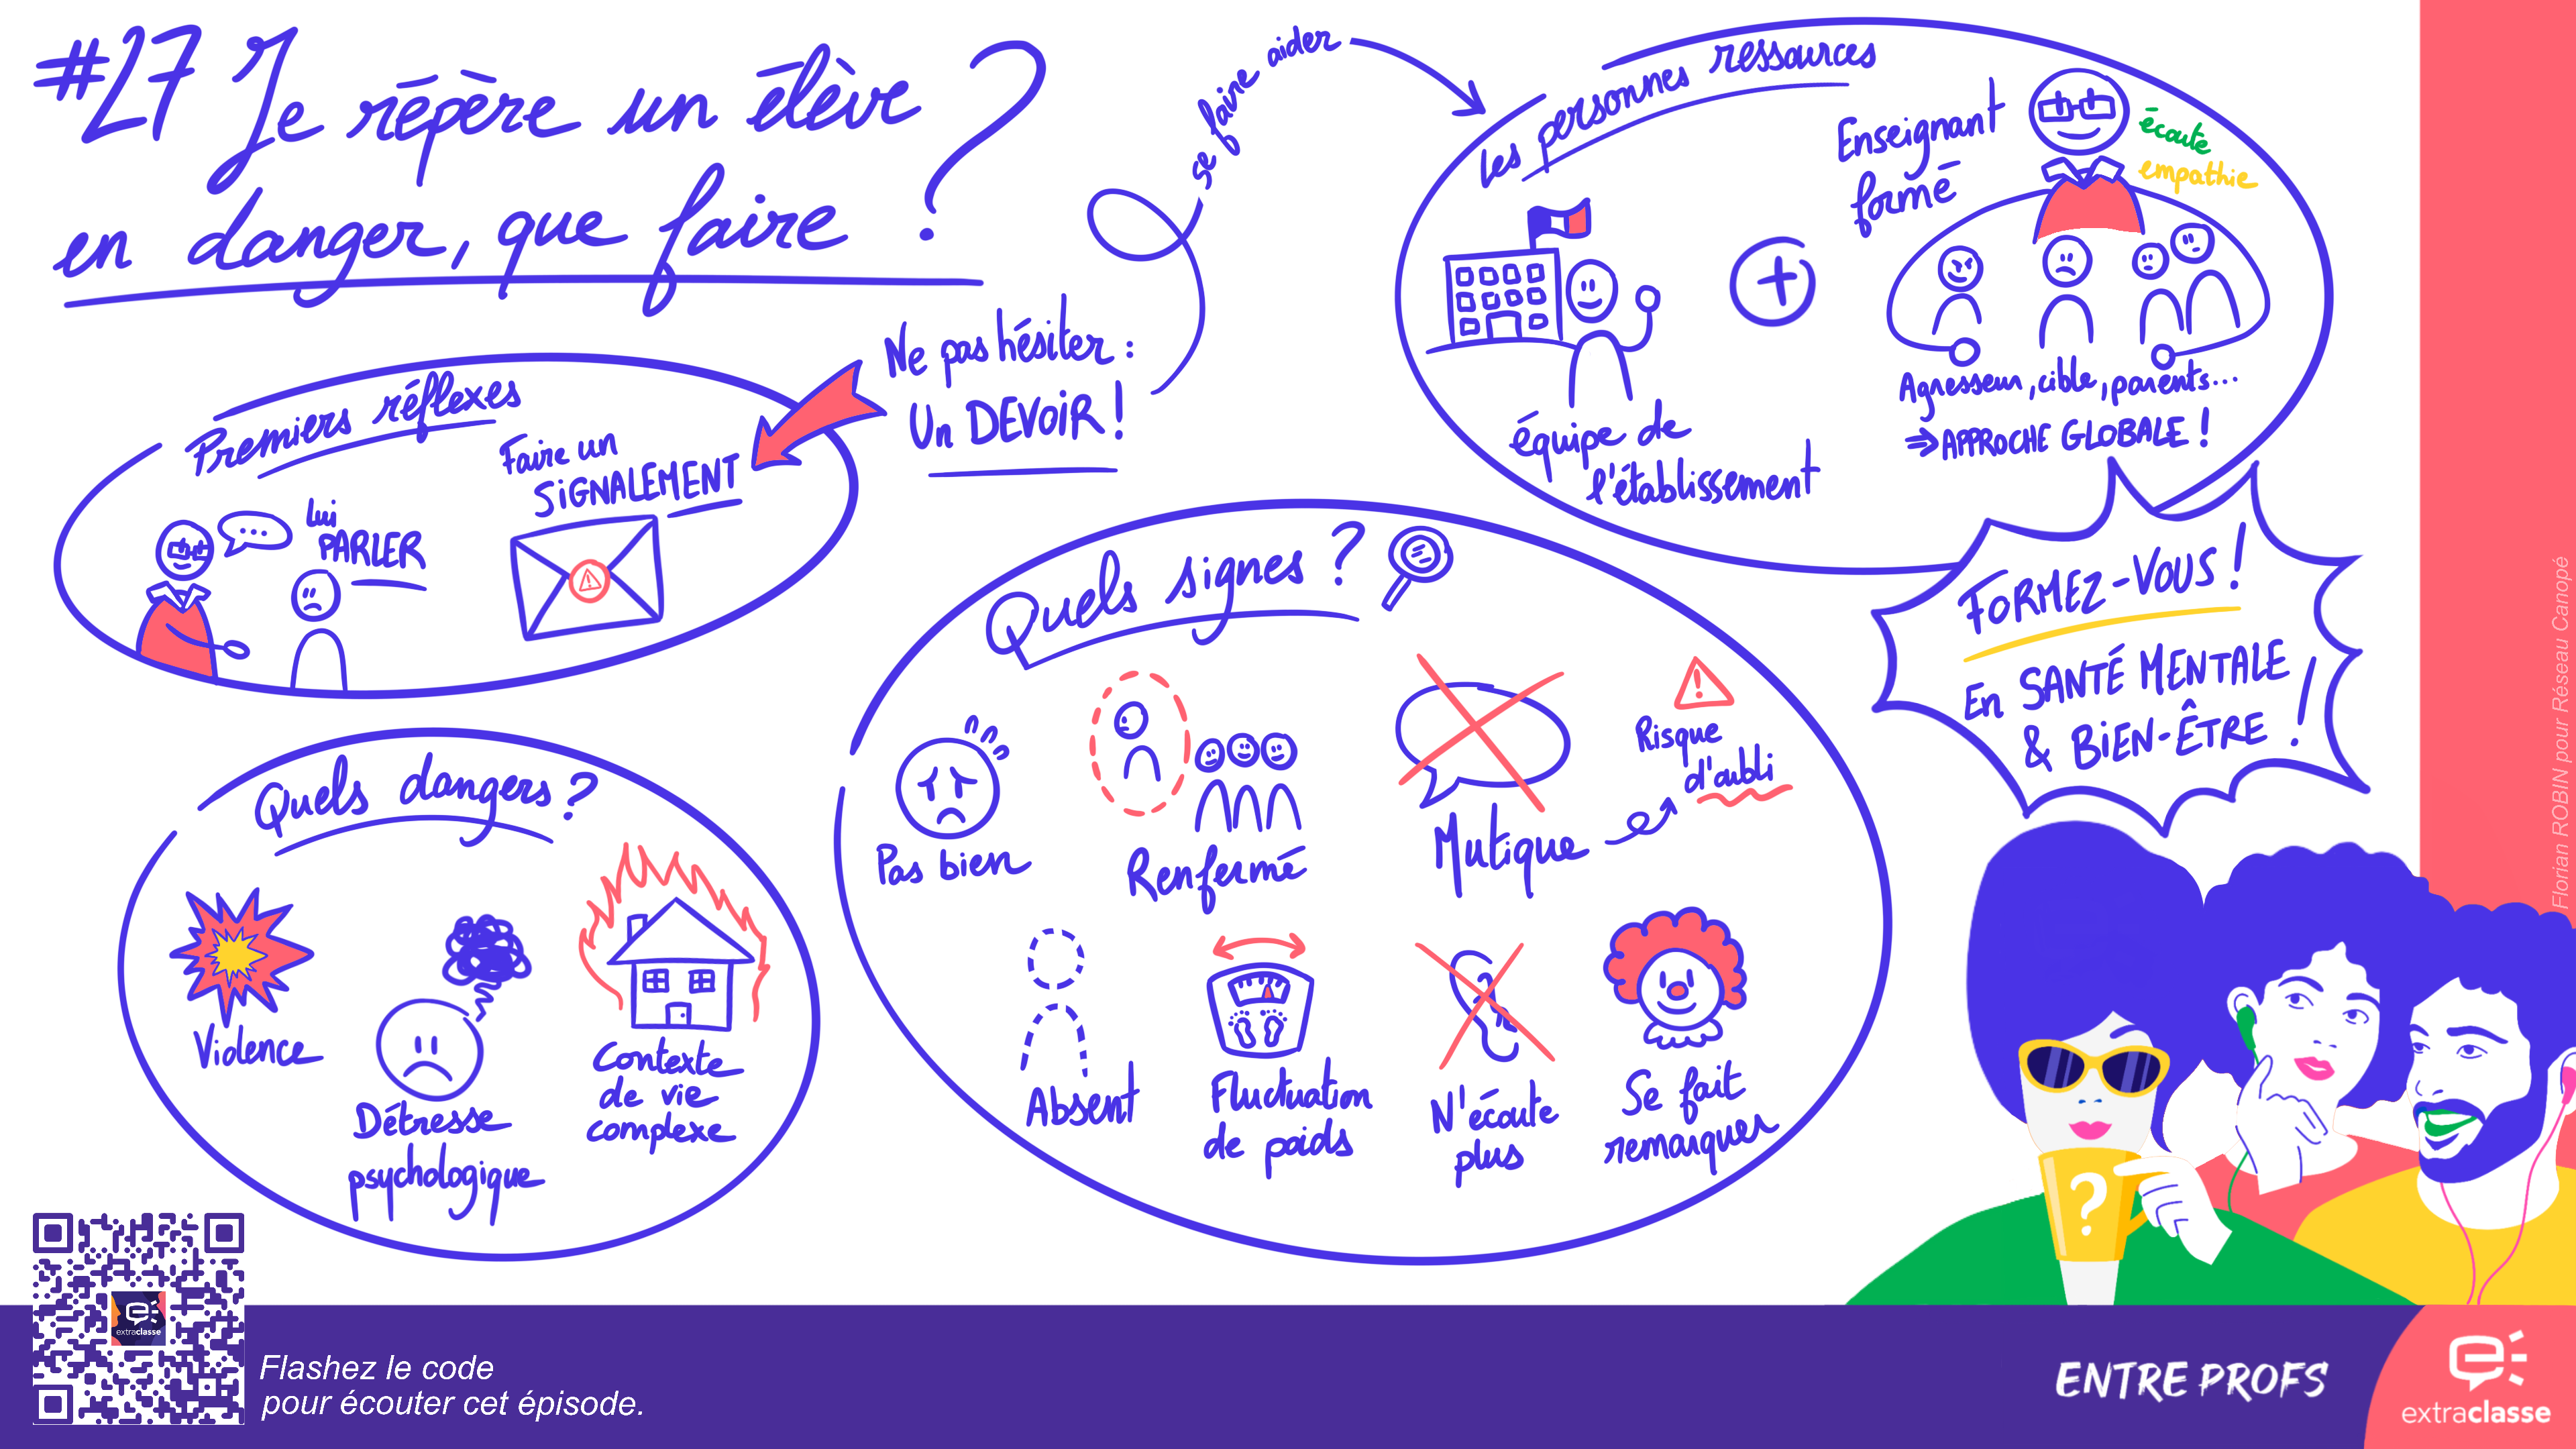 #27 Je répère un élève
en danger, que faire ?
Premiers réflexes
lui
PARLER
Faire un
SIGNALEMENT
Ne pas hésiter :
Un DEVOIR !
se faire aider
Les personnes ressources
équipe de
l'établissement
+
Enseignant
formé
écoute
empathie
Agresseur, cible, parents...
⇒ APPROCHE GLOBALE !
FORMEZ-VOUS !
En SANTÉ MENTALE
& BIEN-ÊTRE !
Quels dangers ?
Violence
Détresse
psychologique
Contexte
de vie
complexe
Quels signes ?
Pas bien
Renfermé
Mutique
Risque
d'oubli
Absent
Fluctuation
de poids
N'écoute
plus
Se fait
remarquer
?
Florian ROBIN pour Réseau Canopé
extraclasse
Flashez le code
pour écouter cet épisode.
ENTRE PROFS
extraclasse